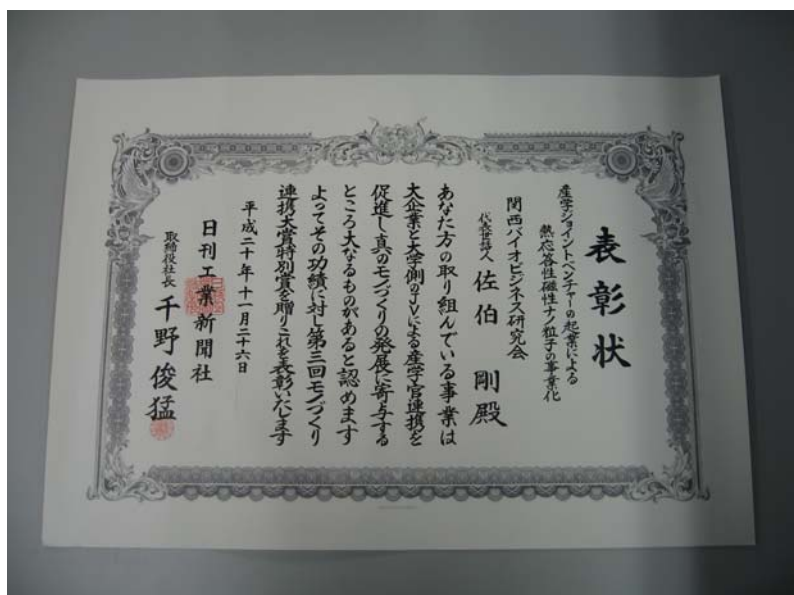 表彰状
産学ジョイントベンチャーの起業による
熱応答性磁性ナノ粒子の事業化
関西バイオビジネス研究会
代表世話人 佐伯 剛殿
あなた方の取り組んでいる事業は
大企業と大学側のJVによる産学官連携を
促進し真のモノづくりの発展に寄与する
ところ大なるものがあると認めます
よってその功績に対し第三回モノづくり
連携大賞特別賞を贈りこれを表彰いたします
平成二十年十一月二十六日
日刊工業新聞社
取締役社長 千野俊猛